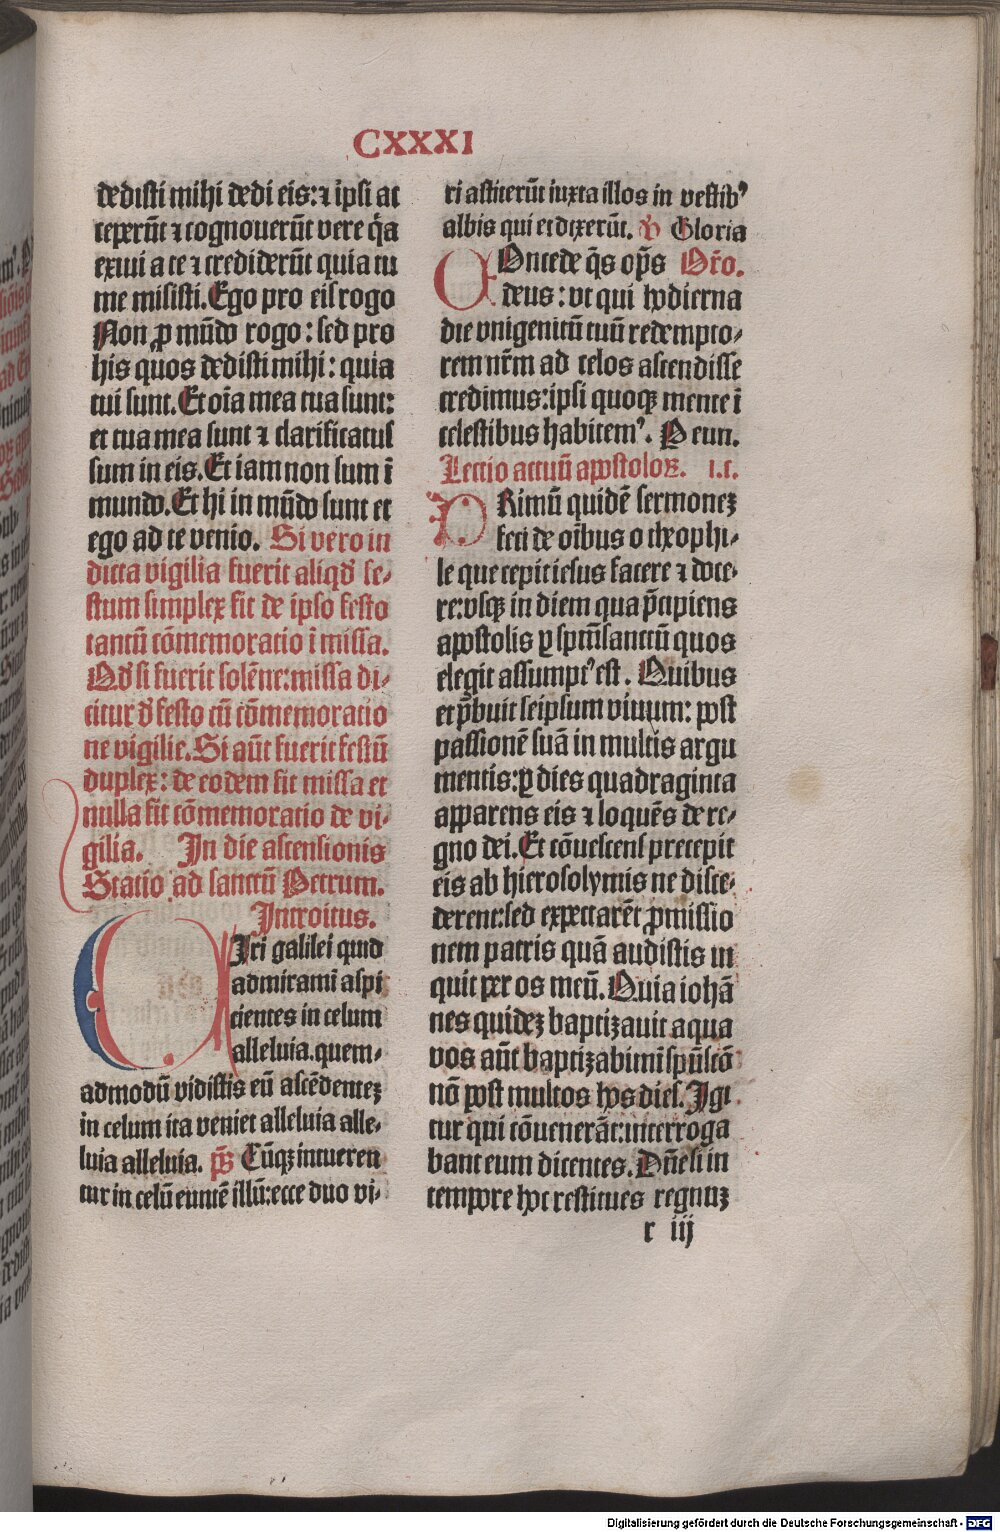 CXXXI
dedisti mihi dedi eis: ⁊ ipsi ac
ceperūt ⁊ cognouerūt vere qͥa
exiui a te ⁊ crediderūt quia tu
me misisti. Ego pro eis rogo
Non ꝓ mūdo rogo: sed pro
his quos dedisti mihi: quia
tui sunt. Et oīa mea tua sunt:
et tua mea sunt ⁊ clarificatus
sum in eis. Et iam non sum ī
mundo. Et hi in mūdo sunt et
ego ad te venio. Si vero in
dicta vigilia fuerit aliqd̕ fe-
stum simplex fit de ipso festo
tantū cōmemoratio ī missa.
Qd̕ si fuerit solēne: missa di-
citur d̕ festo cū cōmemoratio
ne vigilie. Si aūt fuerit festū
duplex: de eodem fit missa et
nulla fit cōmemoratio de vi-
gilia. In die ascensionis
Statio ad sanctū Petrum.
Introitus.
Viri galilei quid
admiramī aspi
cientes in celum
alleluia. quem-
admodū vidistis eū ascēdenteꝫ
in celum ita veniet alleluia alle-
luia alleluia. p̄s Cūqꝫ intueren
tur in celū euntē illū: ecce duo vi-
ri astiterūt iuxta illos in vestibꝰ
albis qui et dixerūt. ꝟ Gloria
COncede q̄s op̄s Or̄o.
deus: vt qui hodierna
die vnigenitū tuū redempto-
rem nr̄m ad celos ascendisse
credimus: ipsi quoqꝫ mente ī
celestibus habitemꝰ. P eun.
Lectio actuū apostoloꝝ. i.c.
PRimū quidē sermoneꝫ
feci de oībus o theophi-
le que cepit iesus facere ⁊ doce-
re: vsqꝫ in diem qua p̄cipiens
apostolis ꝑ sptū̄sanctū quos
elegit assumptꝰ est. Quibus
et p̄buit seipsum viuum: post
passionē suā in multis argu
mentis: ꝑ dies quadraginta
apparens eis ⁊ loquēs de re-
gno dei. Et cōuescens precepit
eis ab hierosolymis ne disce-
derent: sed expectarēt ꝓmissio
nem patris quā audistis in
quit per os meū. Quia iohā
nes quideꝫ baptizauit aqua
vos aūt baptizabimī spū̄scō
nō post multos hos dies. Igi
tur qui cōuenerāt: interroga
bant eum dicentes. Dn̄e si in
tempore hoc restitues regnuꝫ
r iij
Digitalisierung gefördert durch die Deutsche Forschungsgemeinschaft - DFG